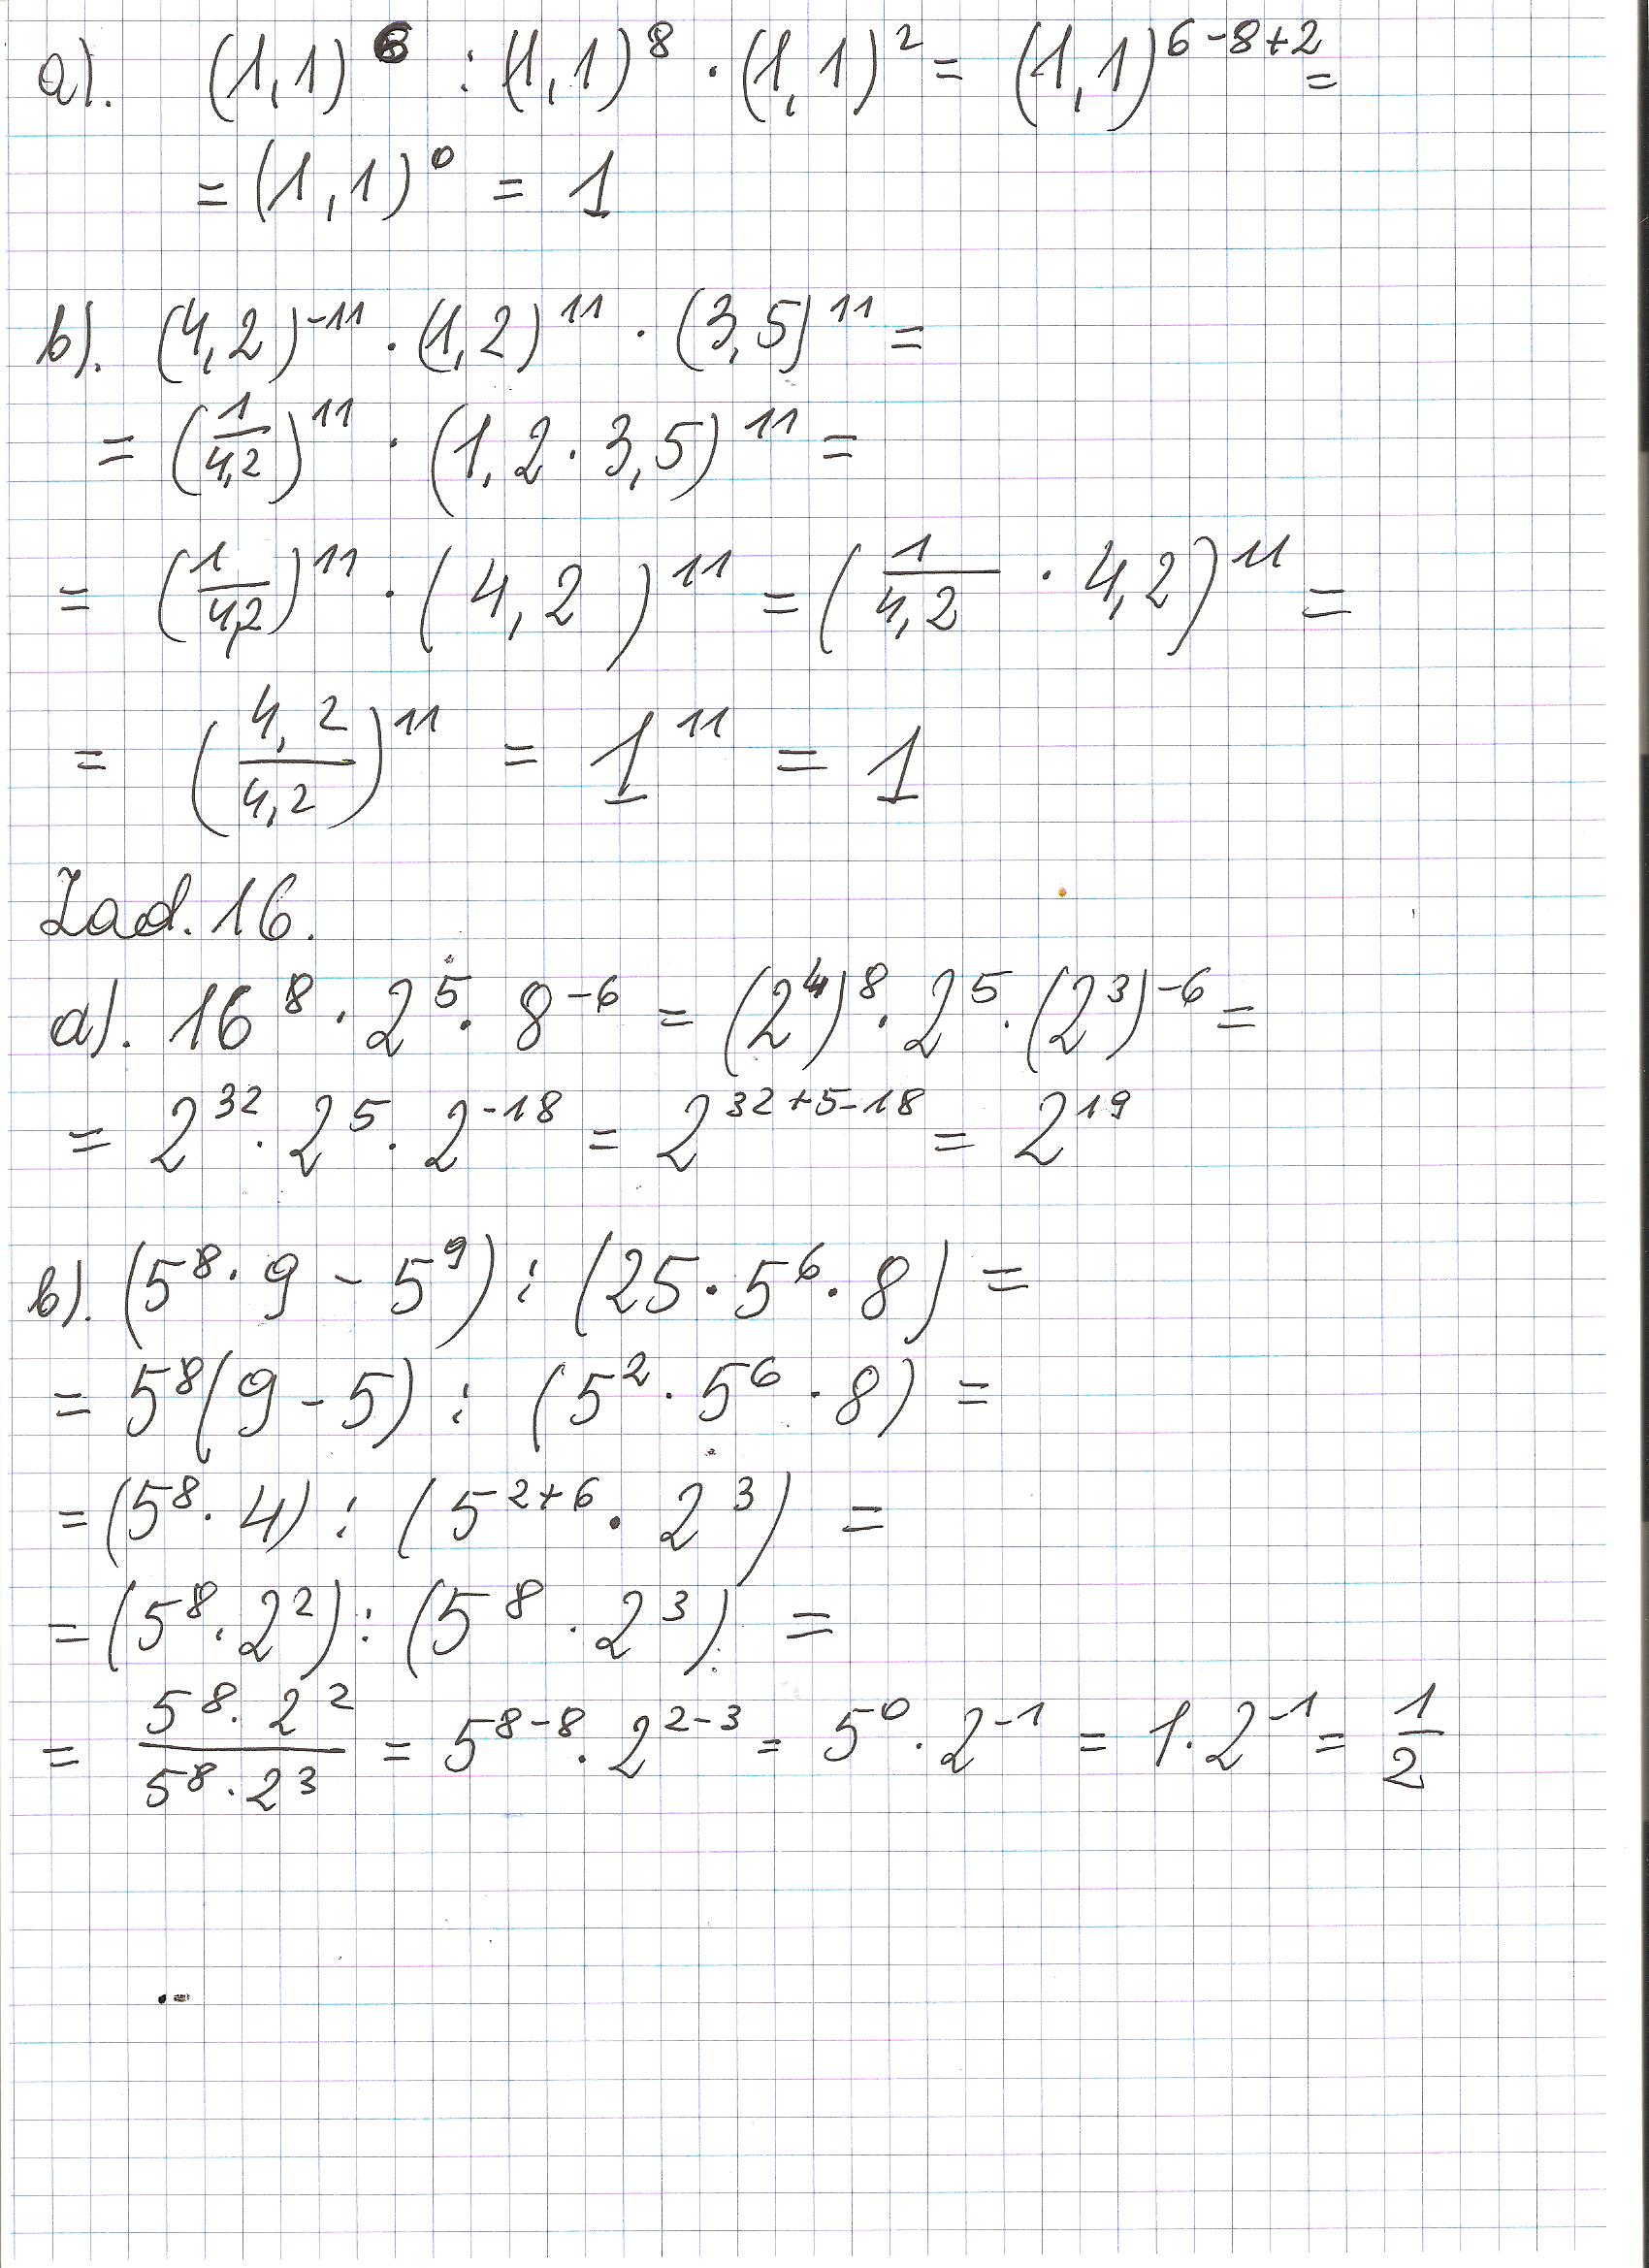 a). (1,1)⁶ : (1,1)⁸ · (1,1)² = (1,1)⁶⁻⁸⁺² =
= (1,1)⁰ = 1
b). (4,2)⁻¹¹ · (1,2)¹¹ · (3,5)¹¹ =
= (1/4,2)¹¹ · (1,2 · 3,5)¹¹ =
= (1/4,2)¹¹ · (4,2)¹¹ = (1/4,2 · 4,2)¹¹ =
= (4,2/4,2)¹¹ = 1¹¹ = 1
Zad. 16.
a). 16⁸ · 2⁵ · 8⁻⁶ = (2⁴)⁸ · 2⁵ · (2³)⁻⁶ =
= 2³² · 2⁵ · 2⁻¹⁸ = 2³²⁺⁵⁻¹⁸ = 2¹⁹
b). (5⁸ · 9 - 5⁹) : (25 · 5⁶ · 8) =
= 5⁸(9 - 5) : (5² · 5⁶ · 8) =
= (5⁸ · 4) : (5²⁺⁶ · 2³) =
= (5⁸ · 2²) : (5⁸ · 2³) =
= 5⁸ · 2²/5⁸ · 2³ = 5⁸⁻⁸ · 2²⁻³ = 5⁰ · 2⁻¹ = 1 · 2⁻¹ = 1/2